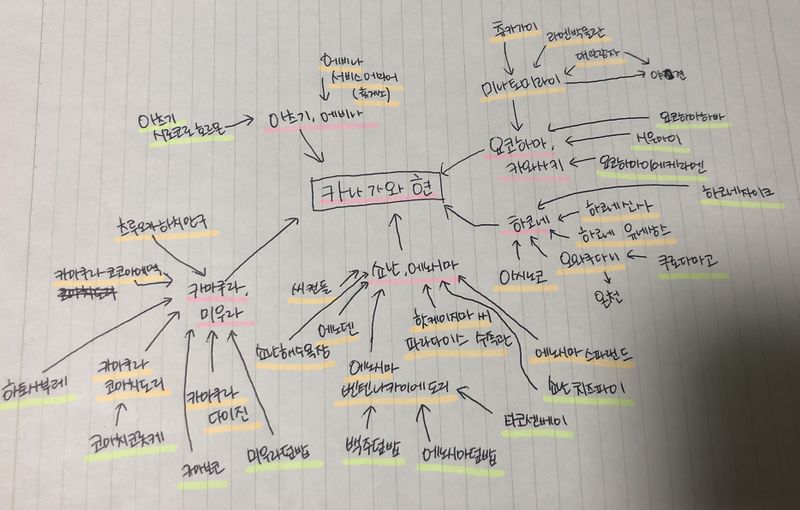 춤카가이
라멘박물관
대관람차
야경
미나토미라이
에비나
서비스에리어
(휴게소)
아츠기
시로코로호르몬
아츠기, 에비나
요코하마,
카와사키
요코하마하바
서욘마이
요코하마이에케라멘
카나가와 현
하코네
하코네지이크
하코네신사
하코네 유네상스
오와쿠다니
쿠로다마고
아시노코
온천
츠루오카하치만구
카마쿠라코코마에역
카마쿠라,
미우라
하토사부레
카마쿠라
코마치도리
코마치코롯케
카마쿠라
다이진
카마보코
미우라덮밥
쇼난, 에노시마
씨캔들
에노덴
쇼난해수욕장
핫케이지마 씨
파라다이스 수족관
에노시마
벤텐나카미세도리
백주덮밥
에노시마덮밥
타코센베이
에노시마 스파랜드
쇼난 치즈파이